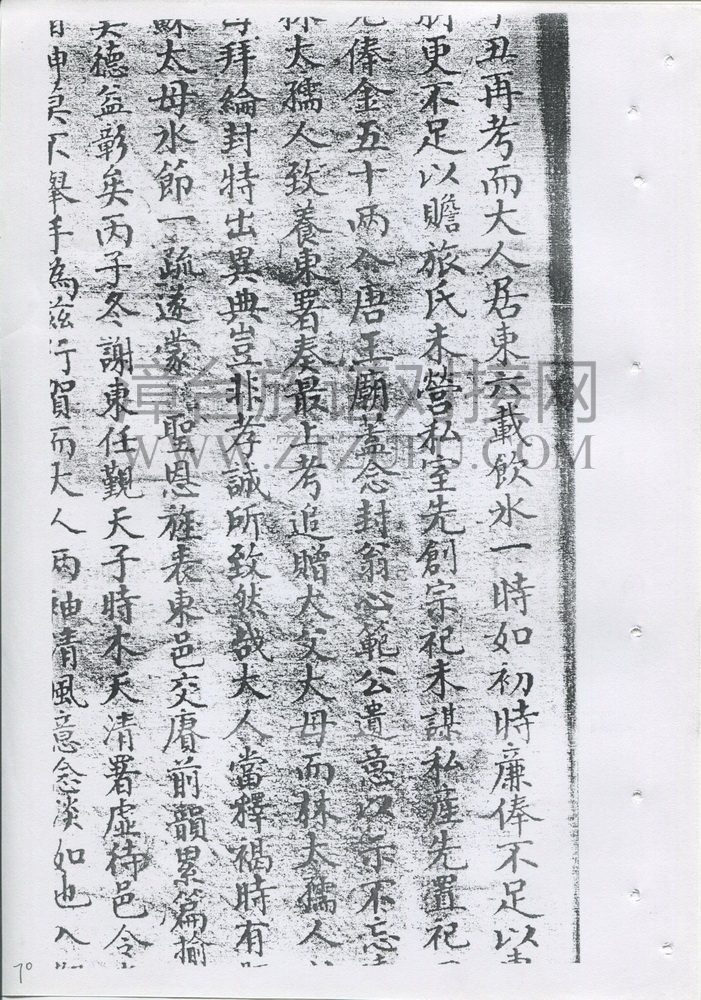 丑再考而大人居東六載飲水一時如初時廉俸不足以
更不足以贍旅氏未營私室先創宗祀未謀私產先置祀
俸金五十兩入唐王廟蓋念封翁心範公遺意以示不忘
林太孺人致養東署奏最上考追贈大父大母而林太孺人
拜綸封特出異典豈非孝誠所致然哉大人當釋褐時有
蘇太母水節一疏遂蒙聖恩旌表東邑交賡前韻累篇揄
德益彰矣丙子冬謝東任覲天子時木天清署虛待邑令
紳莫不舉手為茲行賀而大人兩袖清風意念淡如也入
章台族谱对接网
WWW.ZTZUPU.COM
70